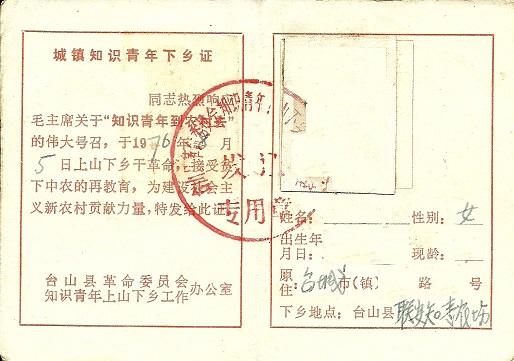 城镇知识青年下乡证
同志热烈响应
毛主席关于“知识青年到农村去”
的伟大号召，于1976年8月
5日上山下乡干革命，接受贫
下中农的再教育，为建设社会主
义新农村贡献力量，特发给此证。
台山县革命委员会
知识青年上山下乡工作办公室
专用章
姓名： 性别：女
出生年
月日： 现龄：
原
住：台城 市(镇) 路 号
下乡地点：台山县 知青农场